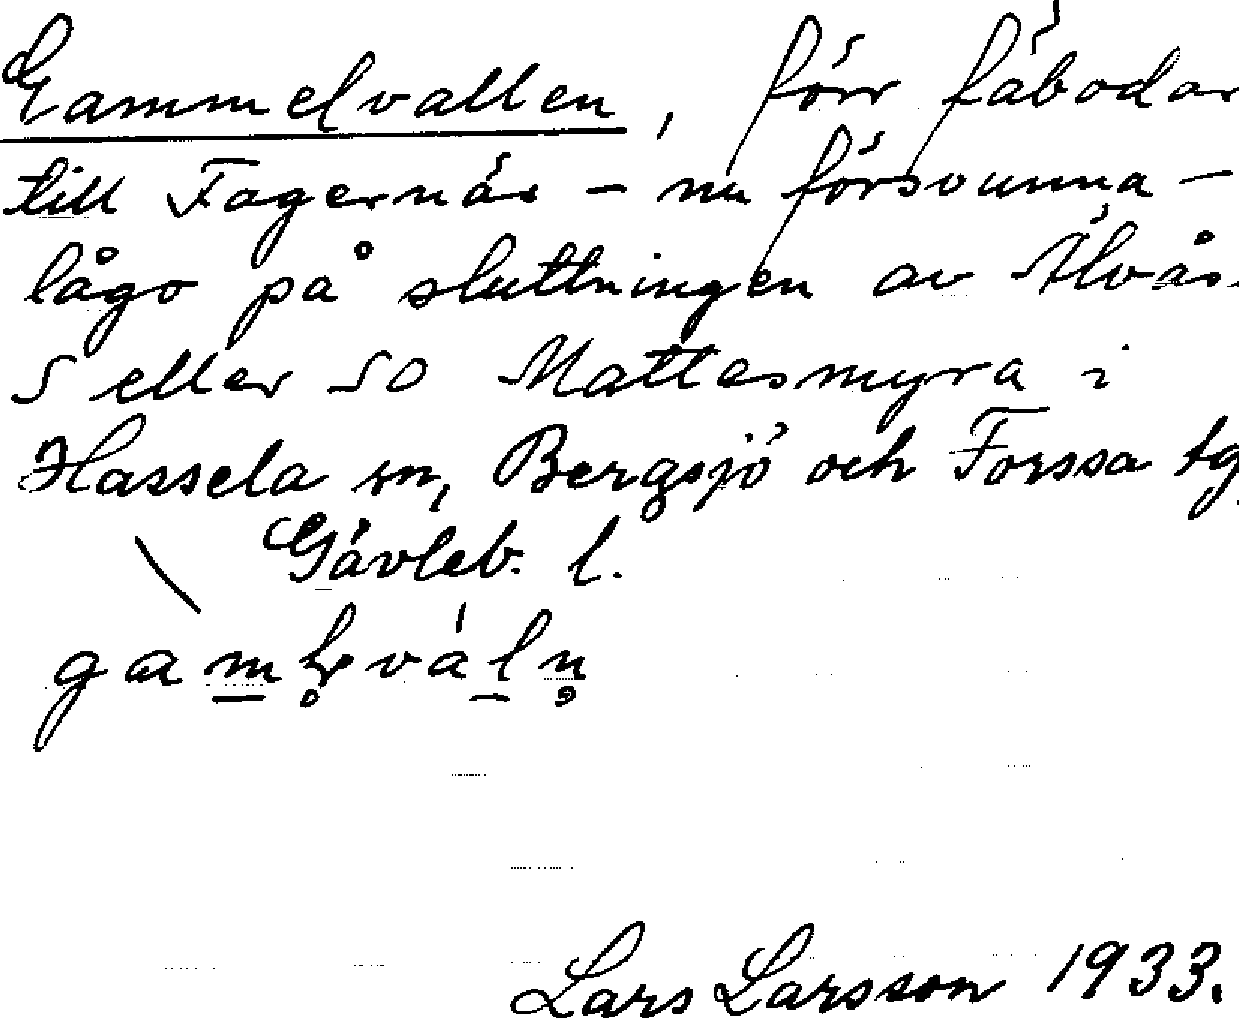 Gammelvallen, förr fäbodar
till Fagernäs – nu försvunna –
lågo på sluttningen av Älvås
S eller SO Mattesmyra i
Hassela sn, Bergsjö och Forssa tg,
Gävleb. l.
Lars Larsson 1933.